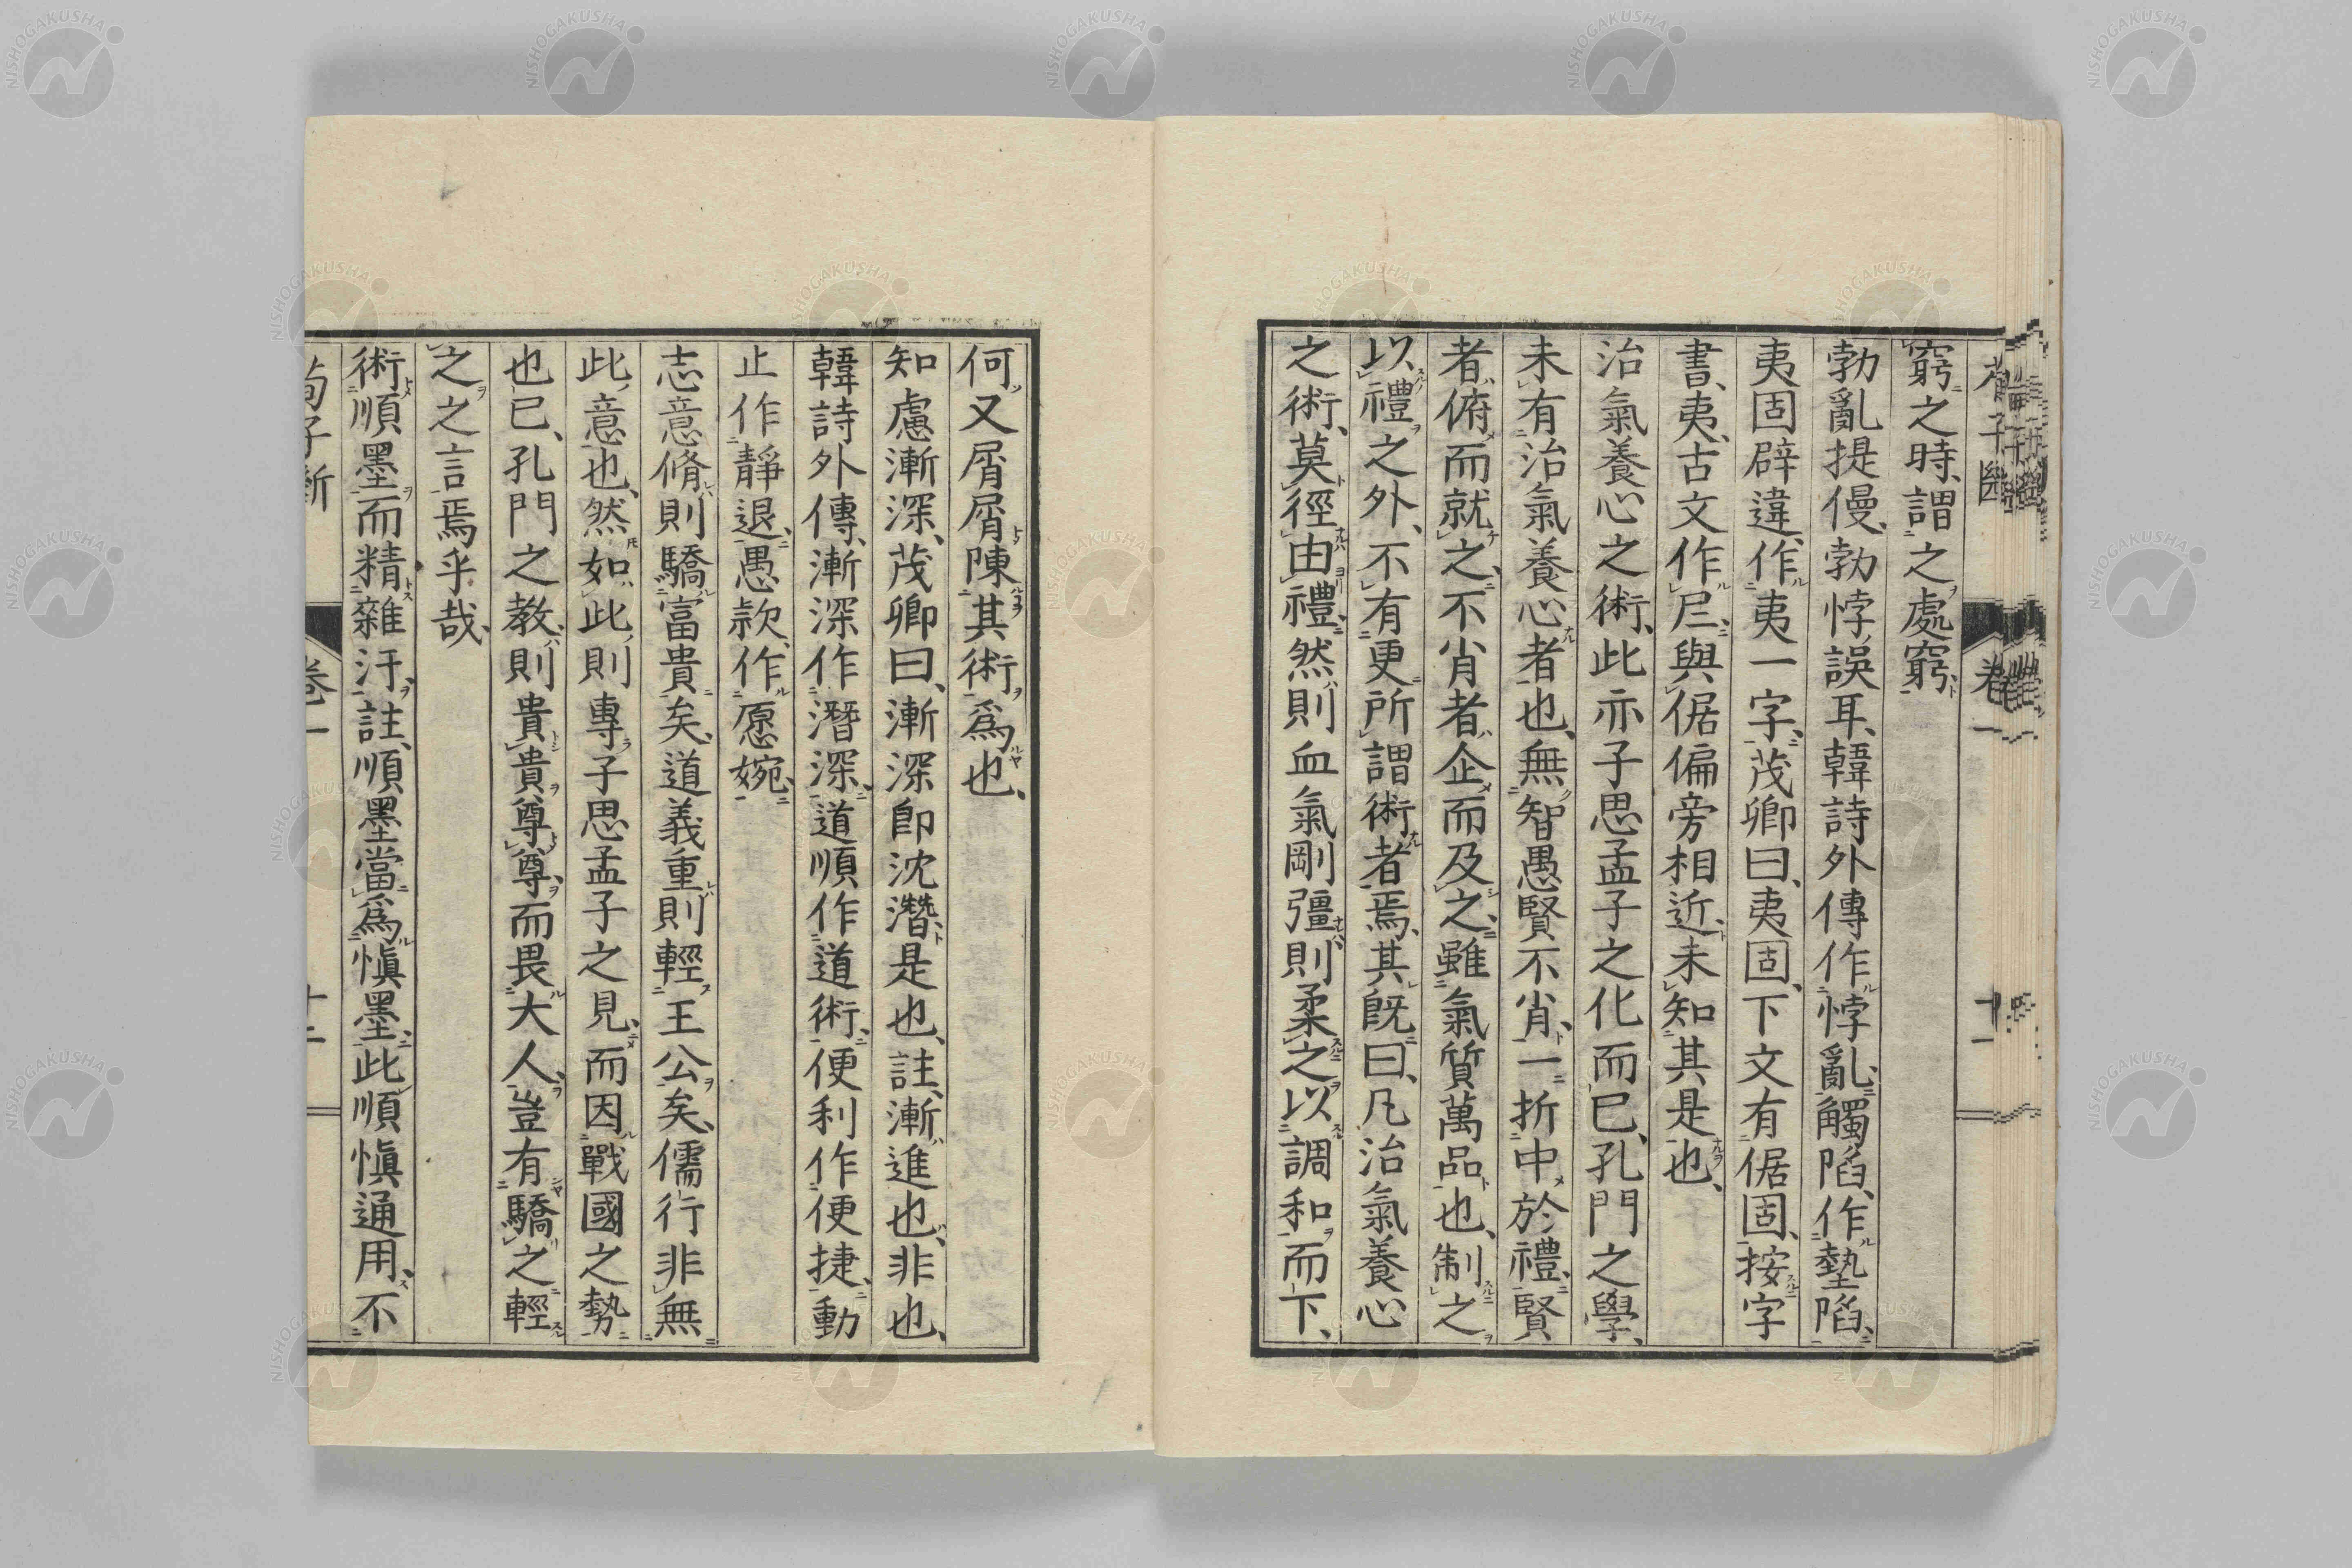 窮之時、謂之處窮、
勃亂提僈、勃悖誤耳、韓詩外傳作悖亂、觸陷、作墊陷、
夷固辟違、作夷一字、茂卿曰、夷固、下文有倨固、按字
書、夷、古文作𡰥、與倨偏旁相近、未知其是也、
治氣養心之術、此亦子思孟子之化而已、孔門之學、
未有治氣養心者也、無智愚賢不肖、一折中於禮、賢
者俯而就之、不肖者企而及之、雖氣質萬品也、制之
以禮之外、不有更所謂術者焉、其旣曰、凡治氣養心
之術、莫徑由禮、然則血氣剛彊則柔之以調和而下、
何又屑屑陳其術爲也、
知慮漸深、茂卿曰、漸深卽沈濳是也、註、漸進也、非也、
韓詩外傳、漸深作潛深、道順作道術、便利作便捷、動
止作靜退、愚款、作愿婉、
志意脩則驕富貴矣、道義重則輕王公矣、儒行非無
此意也、然如此則專子思孟子之見、而因戰國之勢
也已、孔門之教、則貴貴尊尊、而畏大人、豈有驕之輕
之之言焉乎哉、
術順墨而精雜汙、註、順墨當爲愼墨、此順愼通用、不
荀子斷
卷一
十二
NISHOGAKUSHA